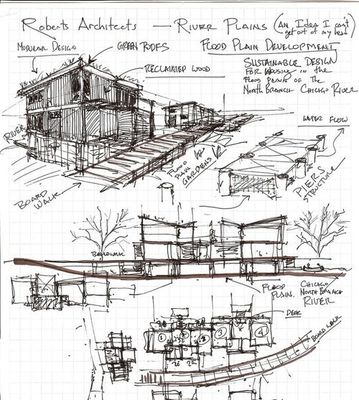 Roberts Architects — River Plains (An Idea I can't
get out of my head)
Modular Design
Green Roofs
Flood Plain Development
Reclaimed Wood
Sustainable Design
for housing in the
flood plains of the
North Branch - Chicago River
River
Water Flow
Flood
Plain
Gardens
Piers
Structure
Board
Walk
Boardwalk
Flood
Plain
Chicago
North Branch
River
Deck
Boardwalk
1
2
3
4